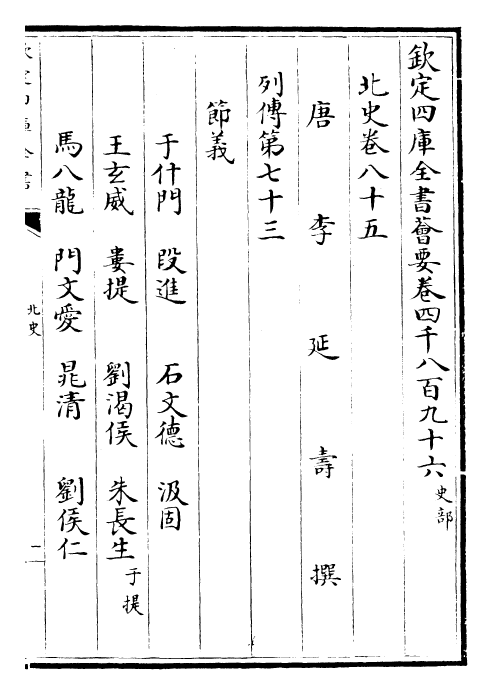 欽定四庫全書薈要卷四千八百九十六 史部
北史卷八十五
唐 李 延 壽 撰
列傳第七十三
節義
于什門 段進 石文德 汲固
王玄威 婁提 劉渴侯 朱長生 于提
馬八龍 門文愛 晁清 劉侯仁
欽定四庫全書
北史
一